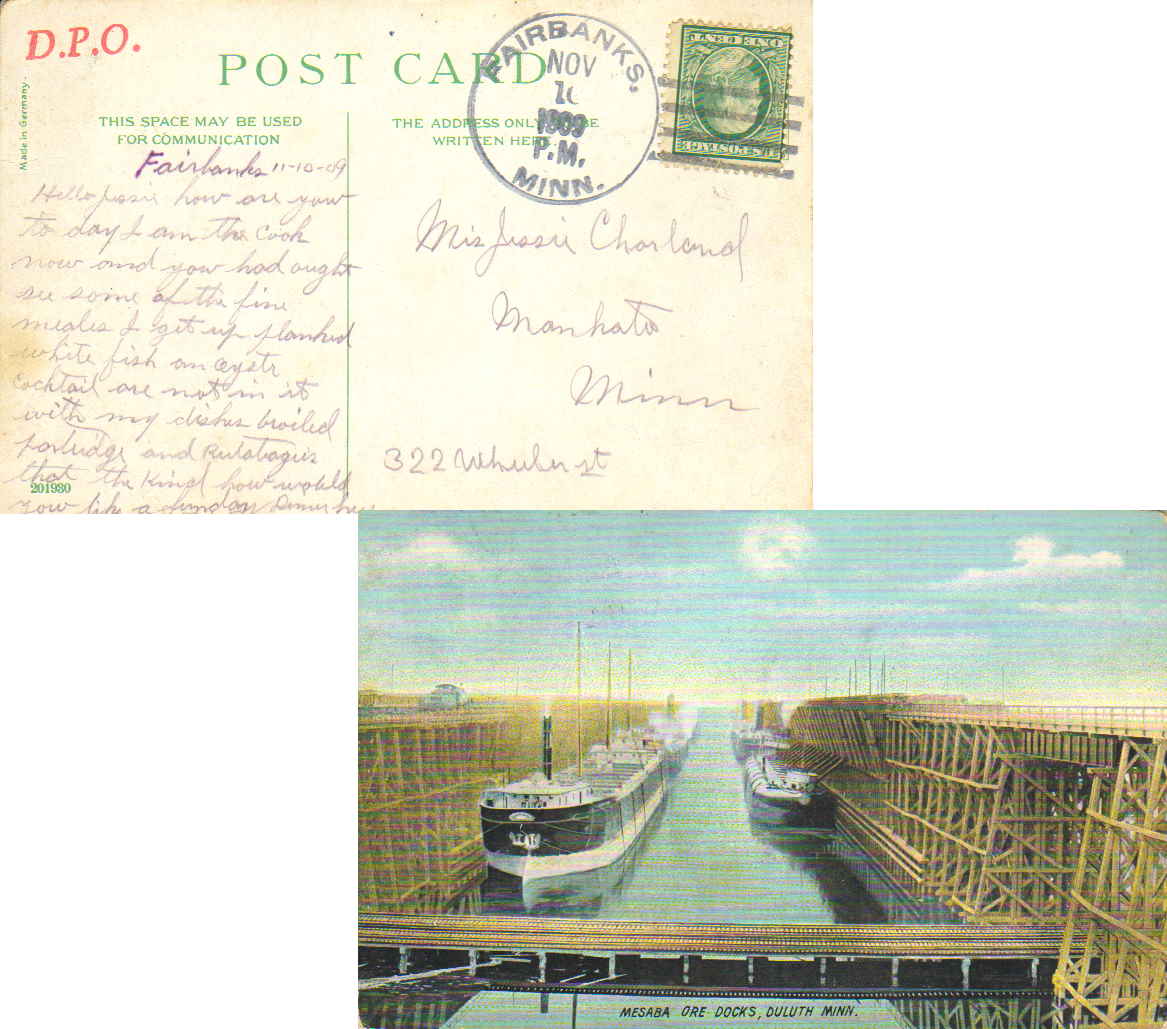 D.P.O.
POST CARD
Made in Germany.
THIS SPACE MAY BE USED
FOR COMMUNICATION
THE ADDRESS ONLY BE
WRITTEN HERE.
FAIRBANKS.
NOV
10
1909
P.M.
MINN.
ONE CENT
U.S. POSTAGE
Fairbanks 11-10-09
Hello Jessie how are yow
to day I am the Cook
now and yow had ought
see some of the fine
meales I get up planked
white fish an oystr
Cocktail are not in it
with my dishes broiled
partridge and Rutabagies
that the Kind how would
yow like a
201930
Mis Jessie Charland
Mankato
Minn
322 Wheeler st
MESABA ORE DOCKS, DULUTH MINN.